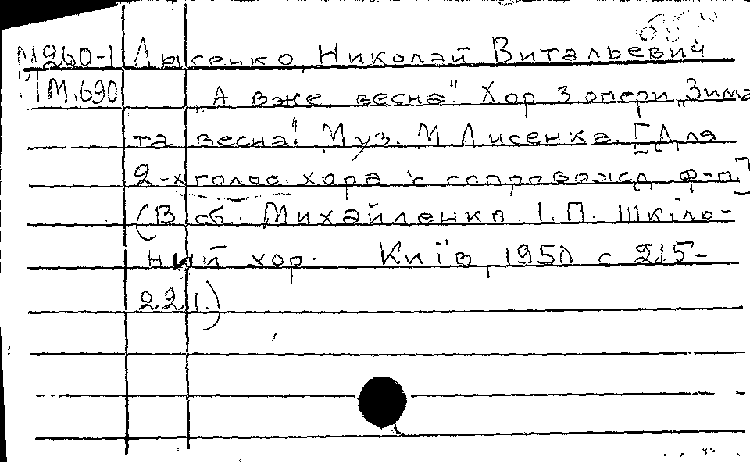 М260-1 Лысенко, Николай Витальевич
ТМ.690 „А вже весна" Хор з опери „Зима
та весна". Муз. М Лисенка. [Для
2-хголос. хора с сопровожд. ф-п.]
(В сб. Михайленко І.П. Шкіль-
ний хор. Київ, 1950 с 215-
221.)